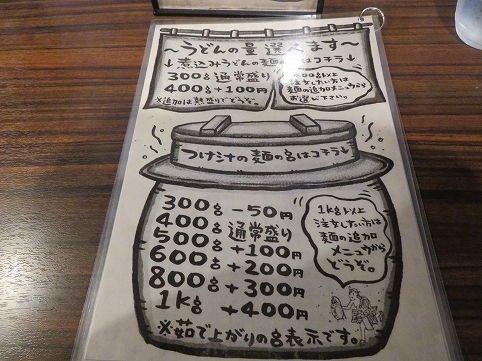 〜うどんの量選べます〜
↓煮込みうどんの麺はコチラ↓
300g 通常盛り
400g+100円
※追加は熱盛りでどうぞ。
注文したい方は
麺の追加メニューから
お選び下さい。
つけ汁の麺の量はコチラ↓
300g −50円
400g 通常盛り
500g
600g +100円
800g +200円
1kg +300円
+400円
1kg以上
注文したい方は
麺の追加
メニューから
どうぞ。
※茹で上がりのg表示です。